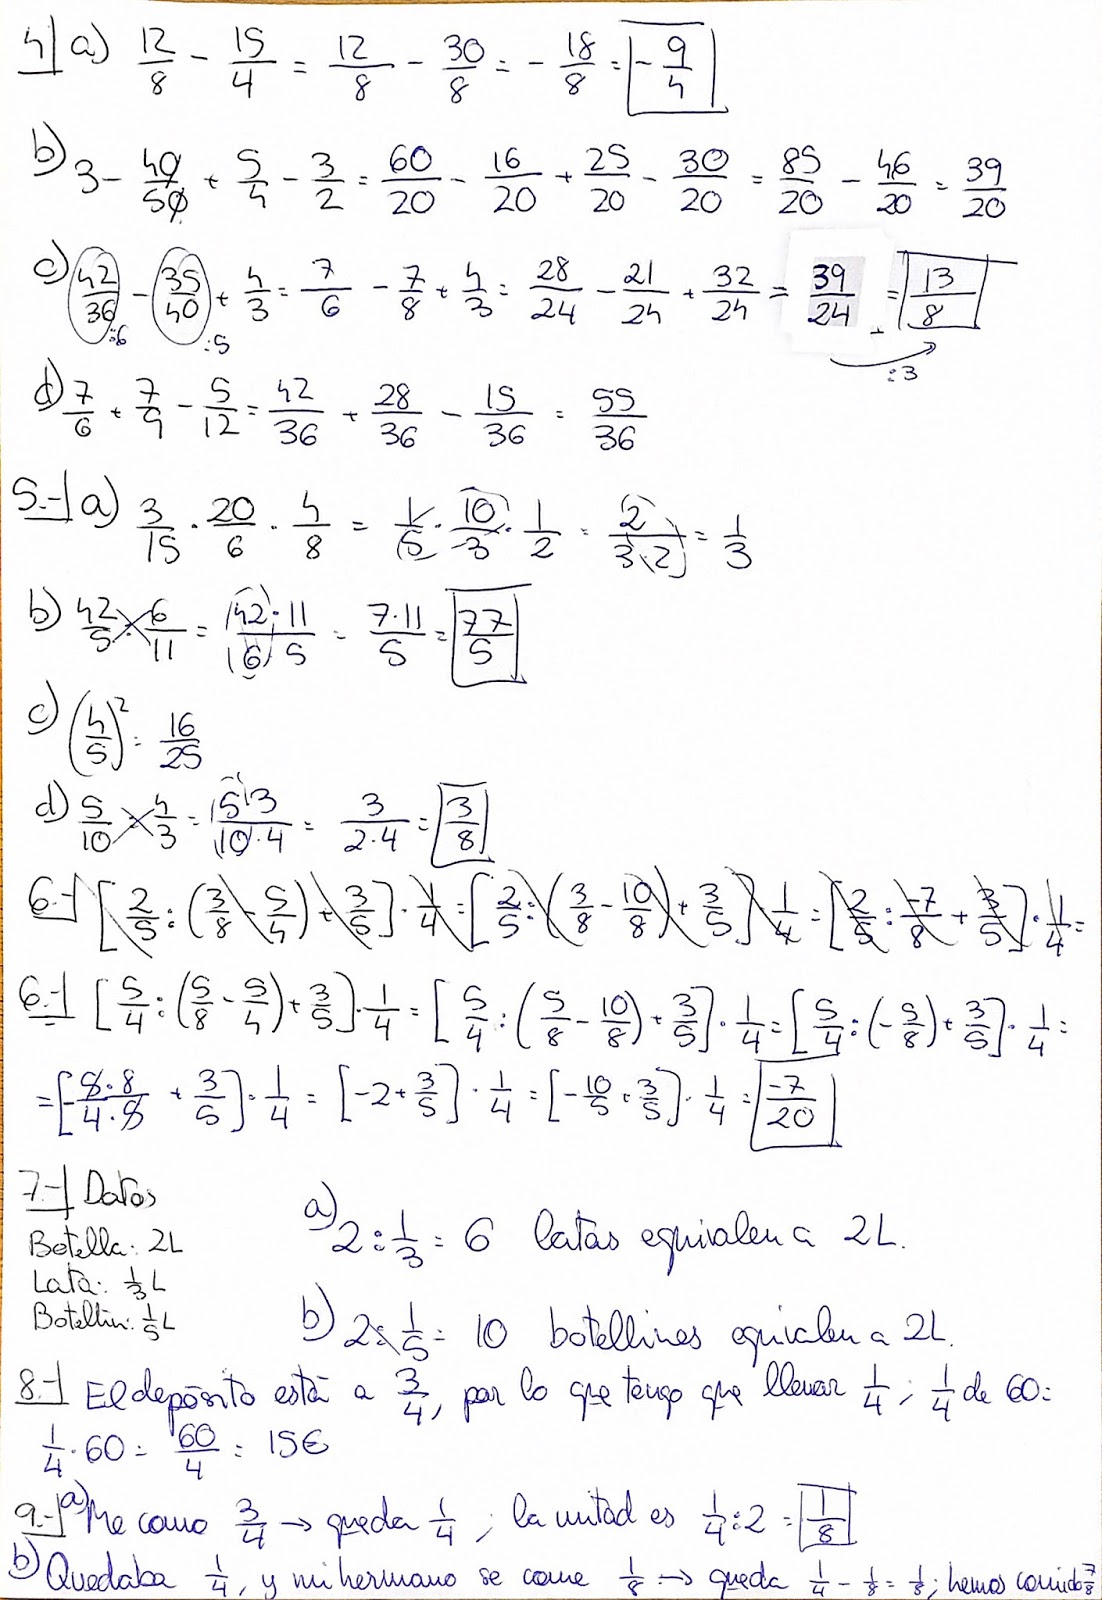 4| a) 12/8 - 15/4 = 12/8 - 30/8 = - 18/8 = - 9/4
b) 3 - 40/50 + 5/4 - 3/2 = 60/20 - 16/20 + 25/20 - 30/20 = 85/20 - 46/20 = 39/20
c) 42/36 - 35/40 + 4/3 = 7/6 - 7/8 + 4/3 = 28/24 - 21/24 + 32/24 = 39/24 = 13/8
:6 :5 :3
d) 7/6 + 7/9 - 5/12 = 42/36 + 28/36 - 15/36 = 55/36
5.-| a) 3/15 · 20/6 · 4/8 = 1/5 · 10/3 · 1/2 = 2/(3·2) = 1/3
b) 42/5 : 6/11 = (42·11)/(6·5) = (7·11)/5 = 77/5
c) (4/5)² = 16/25
d) 5/10 : 4/3 = (5·3)/(10·4) = 3/(2·4) = 3/8
6.-| [2/5 : (3/8 - 5/4) + 3/5] · 1/4 = [2/5 : (3/8 - 10/8) + 3/5] · 1/4 = [2/5 : -7/8 + 3/5] · 1/4 =
6.-| [5/4 : (5/8 - 5/4) + 3/5] · 1/4 = [5/4 : (5/8 - 10/8) + 3/5] · 1/4 = [5/4 : (-5/8) + 3/5] · 1/4 =
= [-(5·8)/(4·5) + 3/5] · 1/4 = [-2 + 3/5] · 1/4 = [-10/5 + 3/5] · 1/4 = -7/20
7.-| Datos
Botella: 2L
Lata: 1/3 L
Botellín: 1/5 L
a) 2 : 1/3 = 6 latas equivalen a 2L.
b) 2 : 1/5 = 10 botellines equivalen a 2L.
8.-| El depósito está a 3/4, por lo que tengo que llenar 1/4; 1/4 de 60 =
1/4 · 60 = 60/4 = 15€
9.-| a) Me como 3/4 → queda 1/4; la mitad es 1/4 : 2 = 1/8
b) Quedaba 1/4, y mi hermano se come 1/8 → queda 1/4 - 1/8 = 1/8; hemos comido 7/8